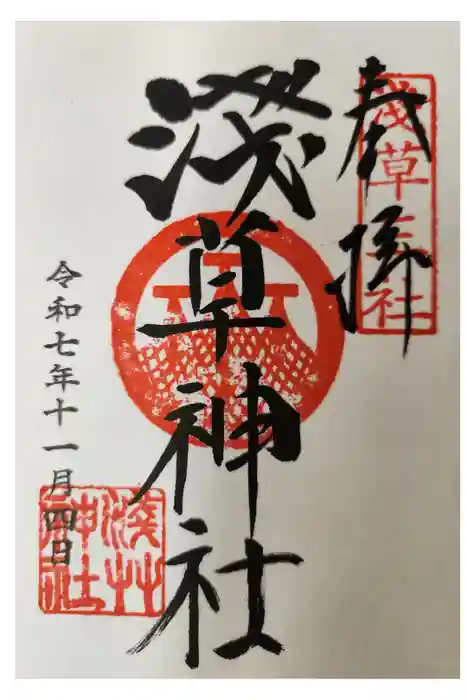 奉拝
淺草三社
淺草神社
令和七年十一月四日
淺草神社